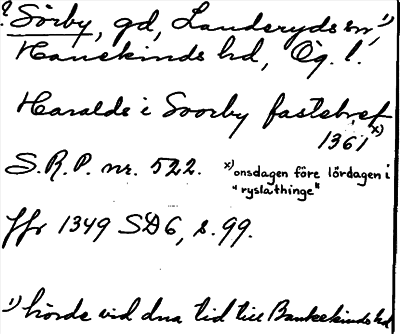 ? Sörby, gd, Landeryds sn, 1)
Hanekinds hd, Ög. l.
Haralds i Soorby fastebref
1361 x)
S.R.P. nr. 522. x) onsdagen före lördagen i
"ryslathinge"
jfr 1349 SD6, s. 99.
1) hörde vid dna tid till Bankekinds hd